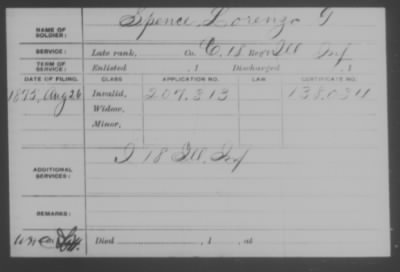 NAME OF SOLDIER: Spence, Lorenzo G
SERVICE: Late rank, Co. C, 18 Reg't Ill Inf
TERM OF SERVICE: Enlisted , 1 Discharged , 1
DATE OF FILING. CLASS APPLICATION NO. LAW CERTIFICATE NO.
1875, Aug 26 Invalid, 207.313 138.034
Widow,
Minor,
ADDITIONAL SERVICES: I 18 Ill. Inf
REMARKS:
Died , 1 , at